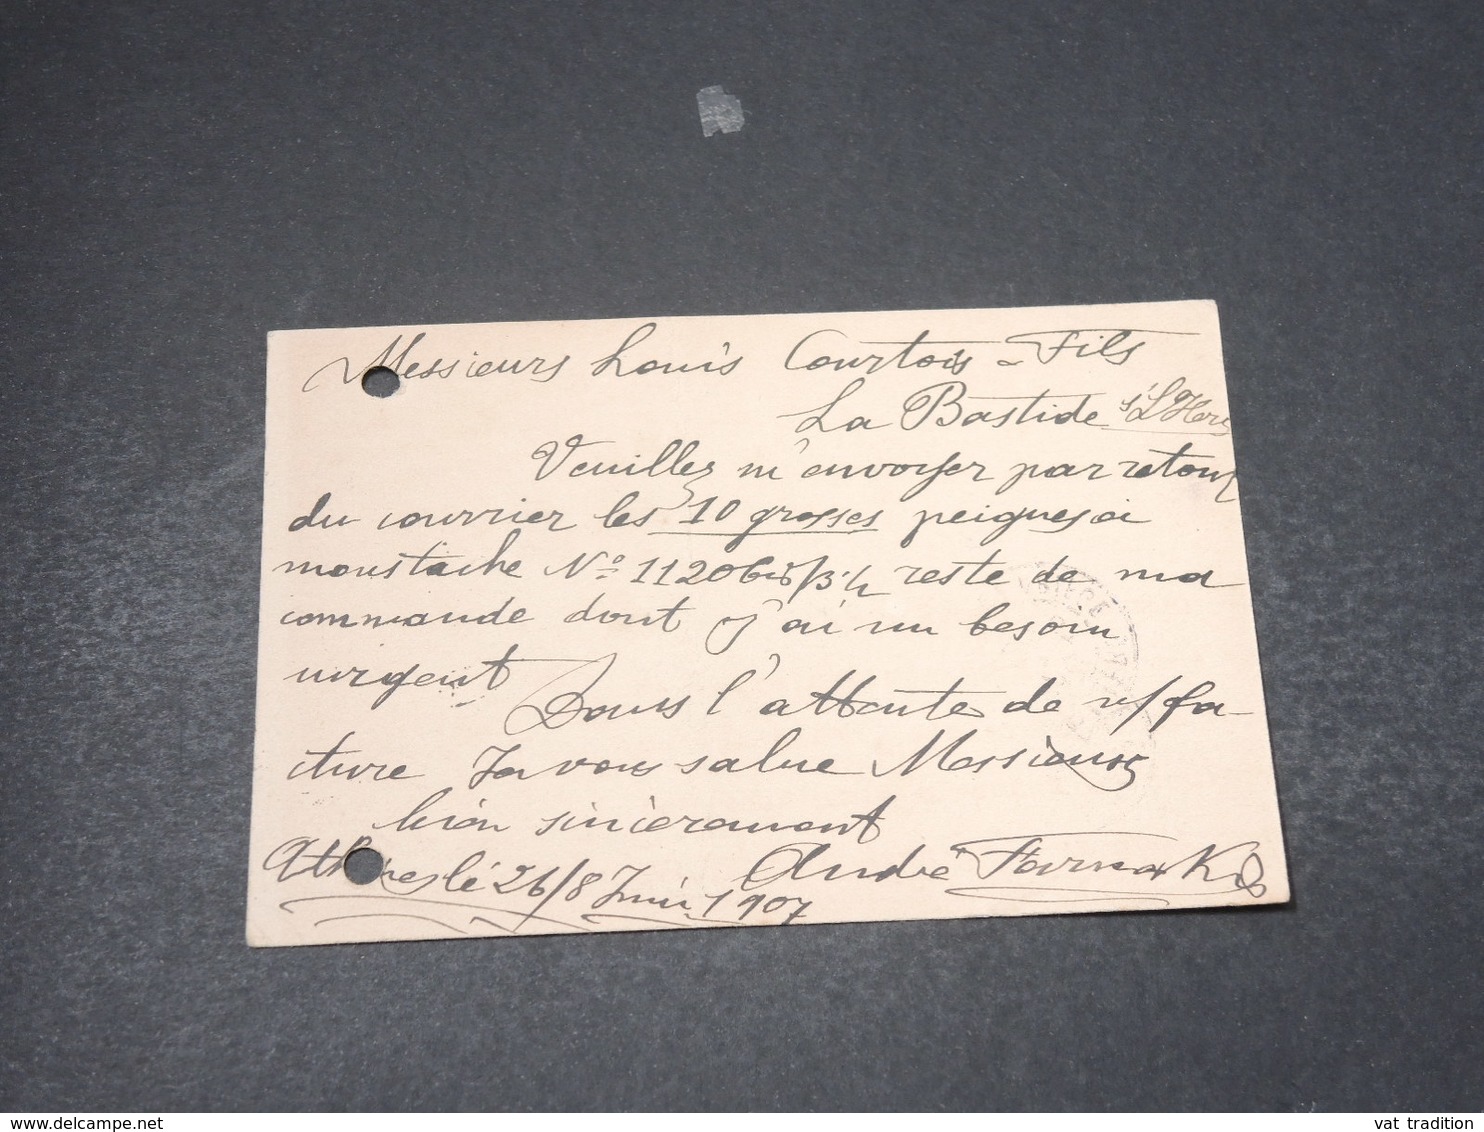 Messieurs Louis Courtois - Fils
La Bastide s/ L'Hers
Veuillez m'envoyer par retour
du courrier les 10 grosses peignes a
moustache No 1120 bis/3 1/2 reste de ma
commande dont j'ai un besoin
urgent
Dans l'attente de v/ fa-
cture Je vous salue Messieurs
bien sincèrement
Athènes le 26/8 Juin 1907
André
delcampe.net
vat tradition